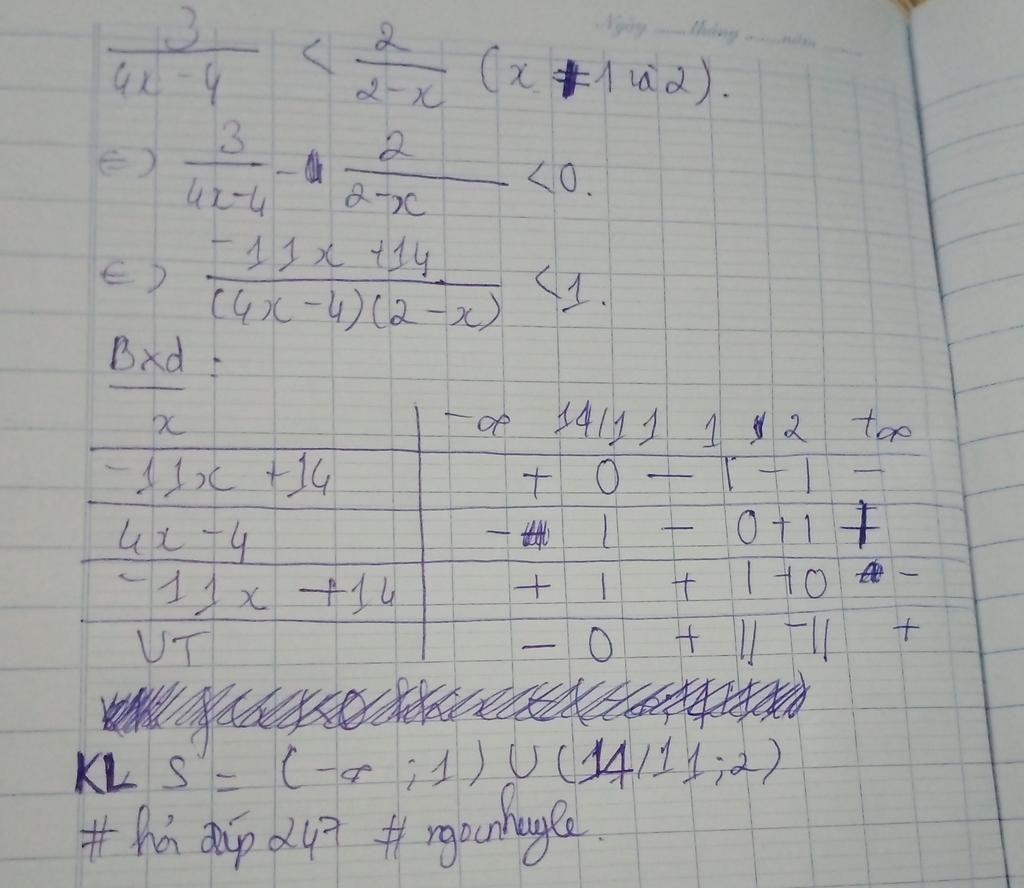 Ngày tháng năm
3/(4x - 4) < 2/(2-x) (x ≠ 1 và 2).
⇔) 3/(4x-4) - 2/(2-x) < 0.
⇔) (-11x + 14)/((4x-4)(2-x)) < 1.
Bxd :
x | -∞ 14/11 1 2 +∞
-11x + 14 | + 0 — | - | -
4x - 4 | - | - 0 + | +
-11x + 14 | + | + | + 0 -
VT | — 0 + || - || +
KL S = (-∞ ; 1) ∪ (14/11 ; 2)
# hỏi đáp 247 # ngocnhuyle.